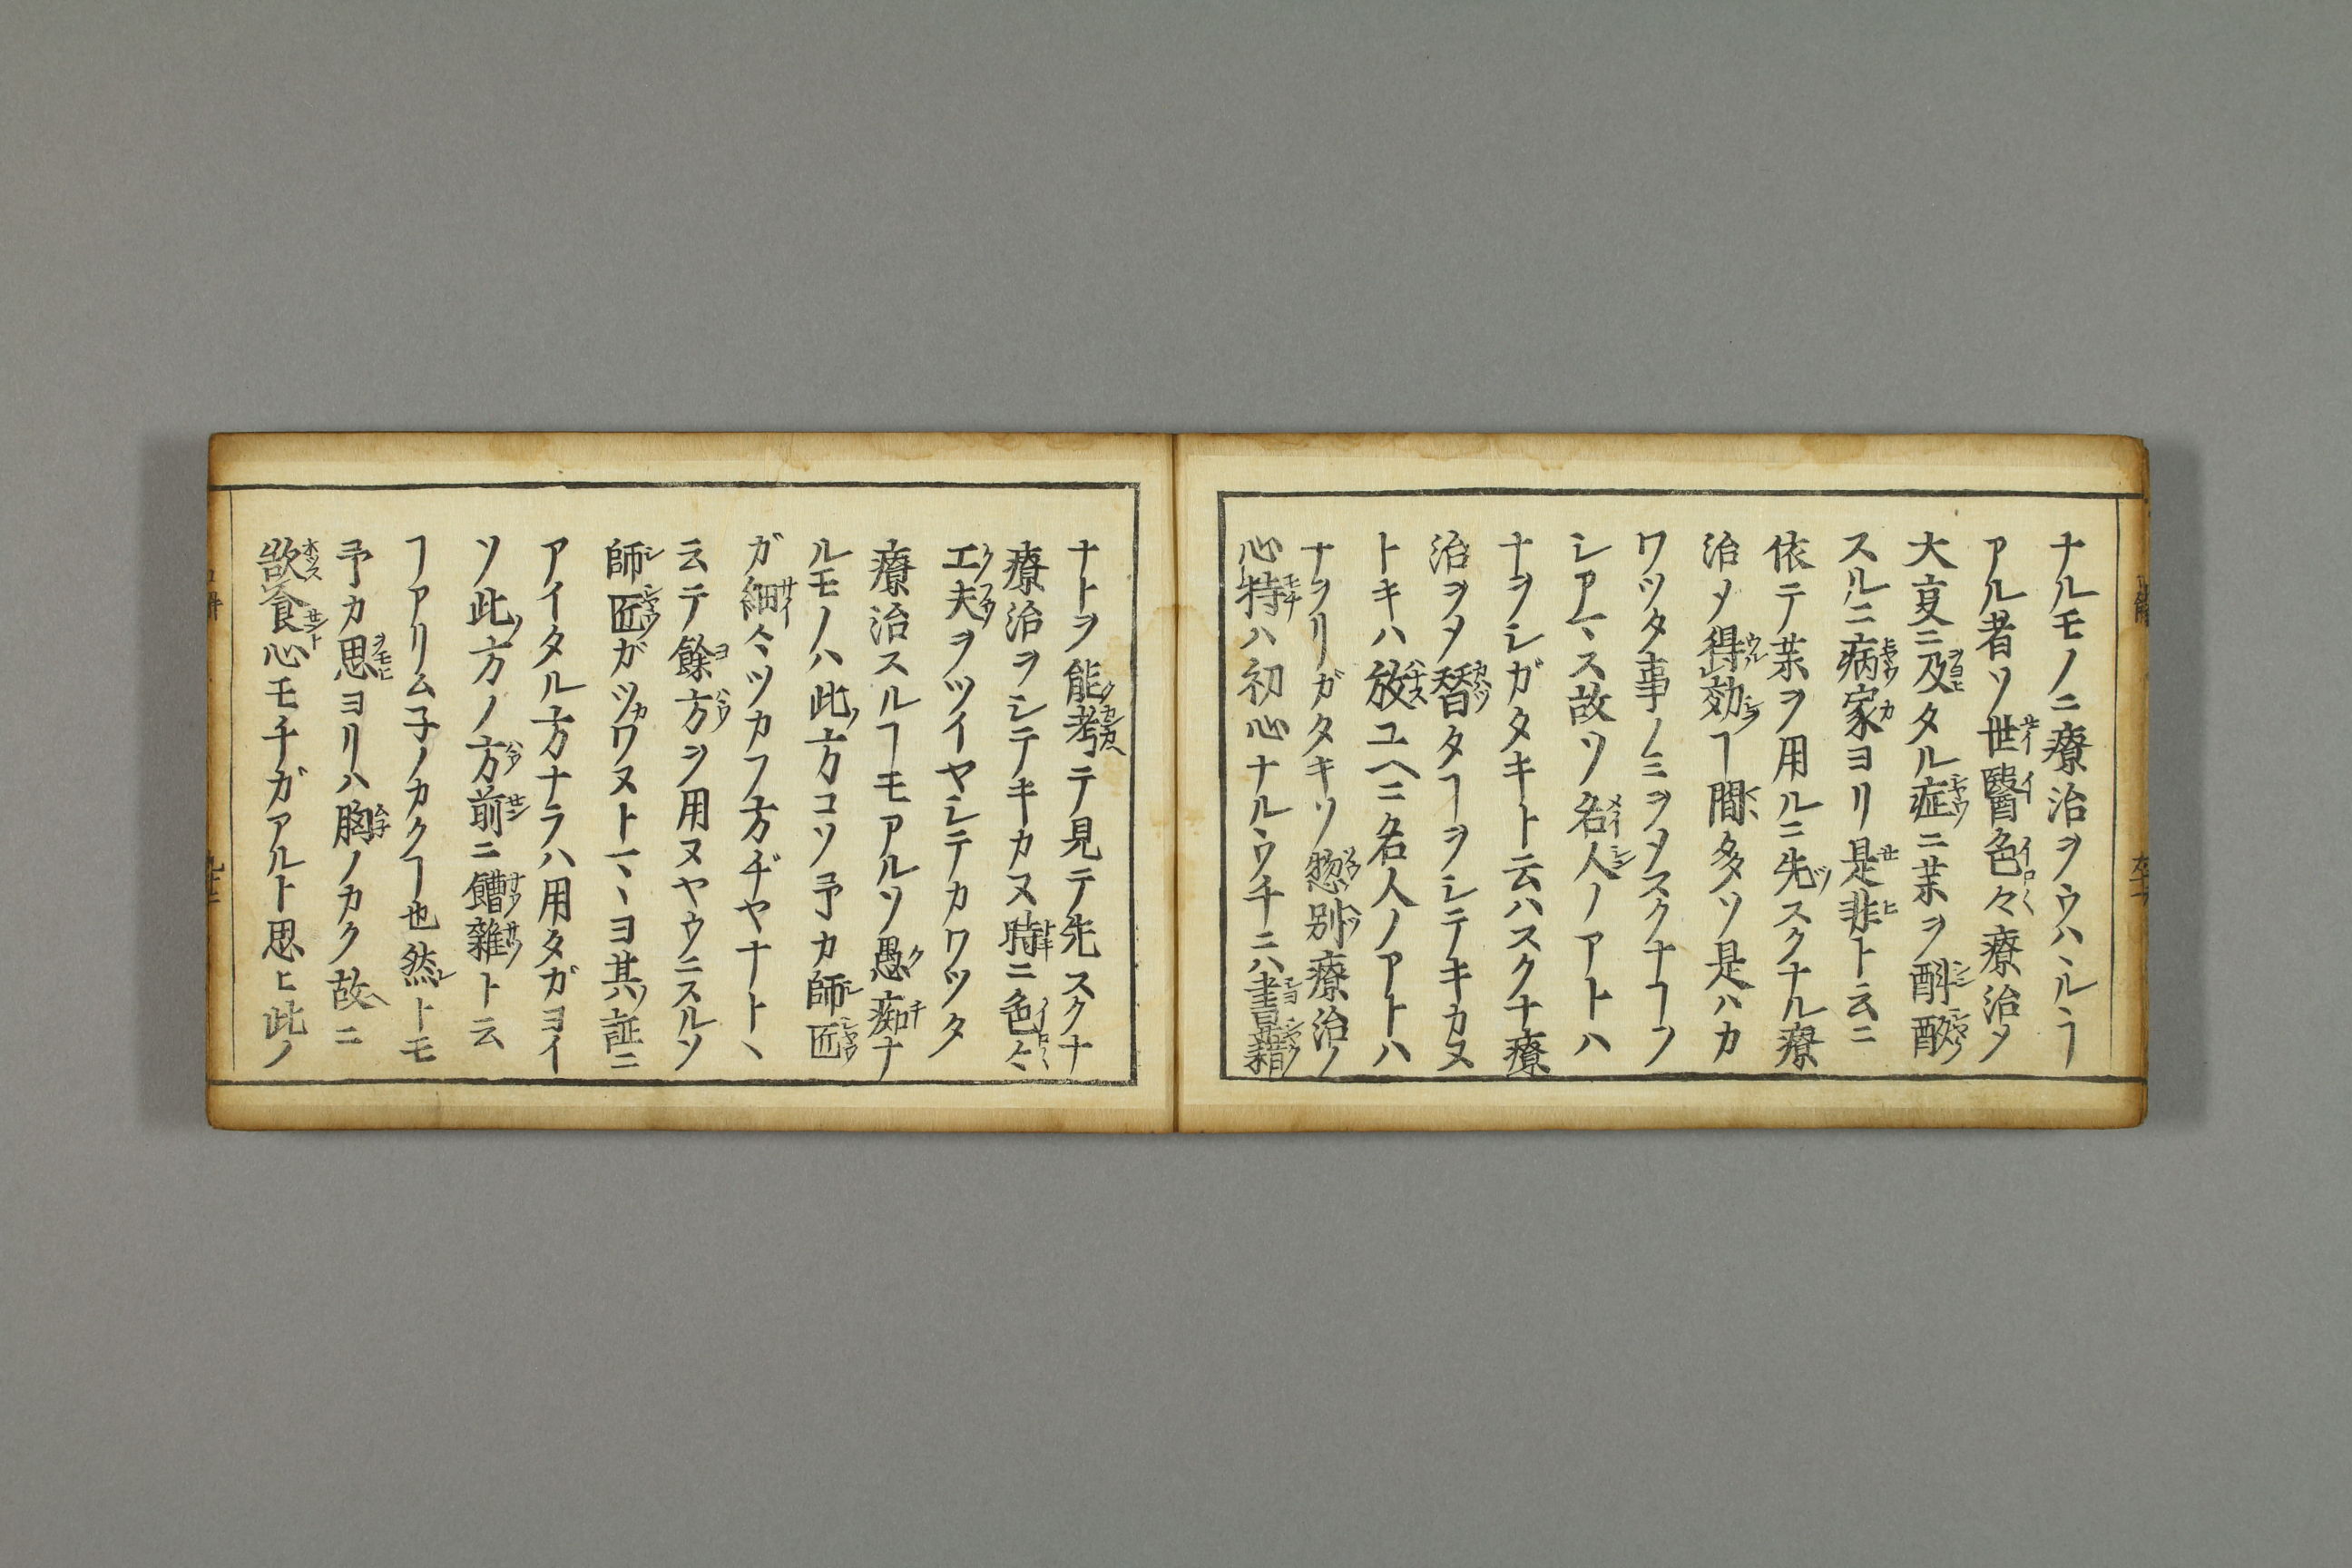 ナルモノニ療治ヲウハヽルヿ
アル者ソ世醫色々療治〆
大叓ニ及タル症ニ薬ヲ斟酌
スルニ病家ヨリ是非ト云ニ
依テ薬ヲ用ルニ先スクナル療
治〆得効ヿ間多ソ是ハカ
ワツタ事ノミヲ〆スクナヿノ
シアヽス故ソ名人ノアトハ
ナヲシガタキト云ハスクナ療
治ヲ〆替タヿヲシテキカヌ
トキハ放ユヘニ名人ノアトハ
ナヲリガタキソ惣別療治ノ
心持ハ初心ナルウチニハ書籍
ナトヲ能考テ見テ先スクナ
療治ヲシテキカヌ時ニ色々
工夫ヲツイヤシテカワツタ
療治スルヿモアルソ愚痴ナ
ルモノハ此方コソ予カ師匠
ガ細々ツカフ方ヂヤナトヽ
云テ餘方ヲ用ヌヤウニスルソ
師匠ガツカワヌトーヽヨ其証ニ
アイタル方ナラハ用タガヨイ
ソ此方ノ方前ニ饋雜ト云
ヿアリム子ノカクヿ也然トモ
予カ思ヨリハ胸ノカク故ニ
欲食心モチガアルト思ヒ此ノ